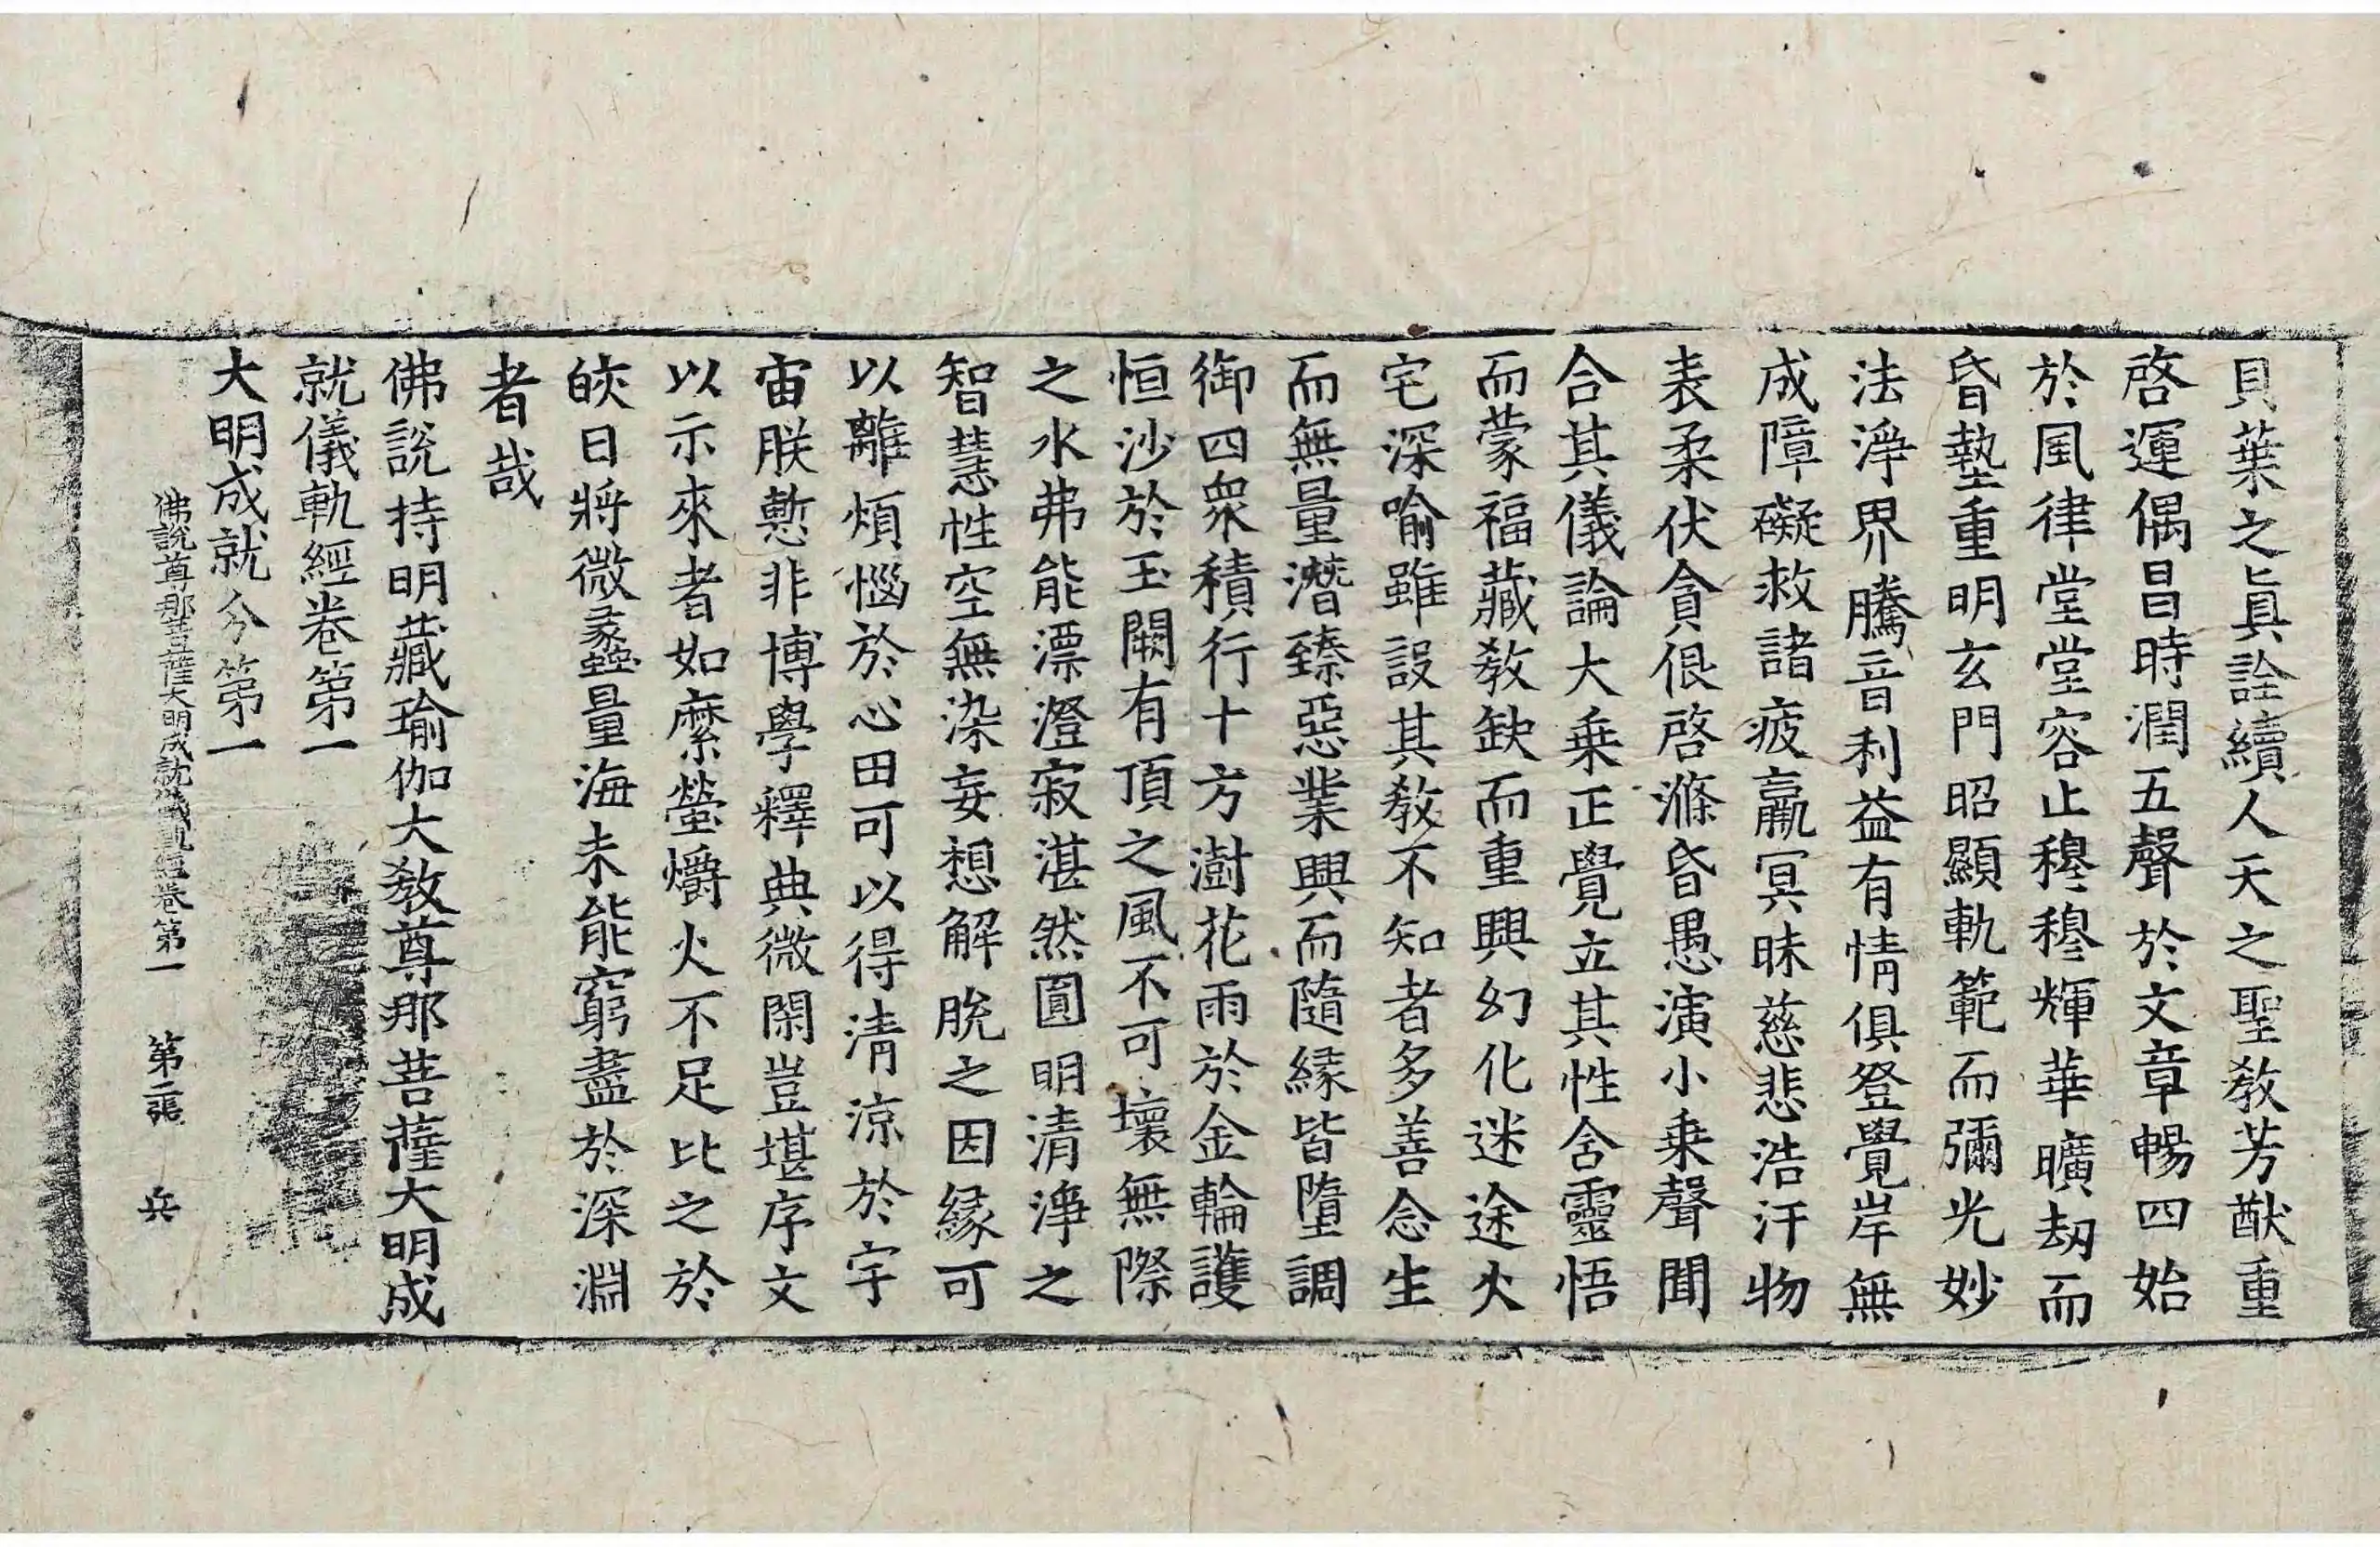 貝葉之眞詮續人天之聖教芳猷重
啓運偶昌時潤五聲於文章暢四始
於風律堂堂容止穆穆輝華曠劫而
昏墊重明玄門昭顯軌範而彌光妙
法淨界騰音利益有情俱登覺岸無
成障礙救諸疲羸冥昧慈悲浩汗物
表柔伏貪佷啓滌昏愚演小乗聲聞
合其儀論大乗正覺立其性含靈悟
而蒙福藏教缺而重興幻化迷途火
宅深喻雖設其教不知者多善念生
而無量潛臻惡業興而隨緣皆墮調
御四衆積行十方澍花雨於金輪護
恒沙於玉闕有頂之風不可壞無際
之水弗能漂澄寂湛然圓明清淨之
智慧性空無染妄想解脫之因緣可
以離煩惱於心田可以得清涼於宇
宙朕慙非博學釋典微閑豈堪序文
以示來者如縻螢爝火不足比之於
皎日將微蠡量海未能窮盡於深淵
者哉
佛說持明藏瑜伽大教尊那菩薩大明成
就儀軌經卷第一
大明成就分第一
佛說尊那菩薩大明成就儀軌經卷第一 第二張 兵